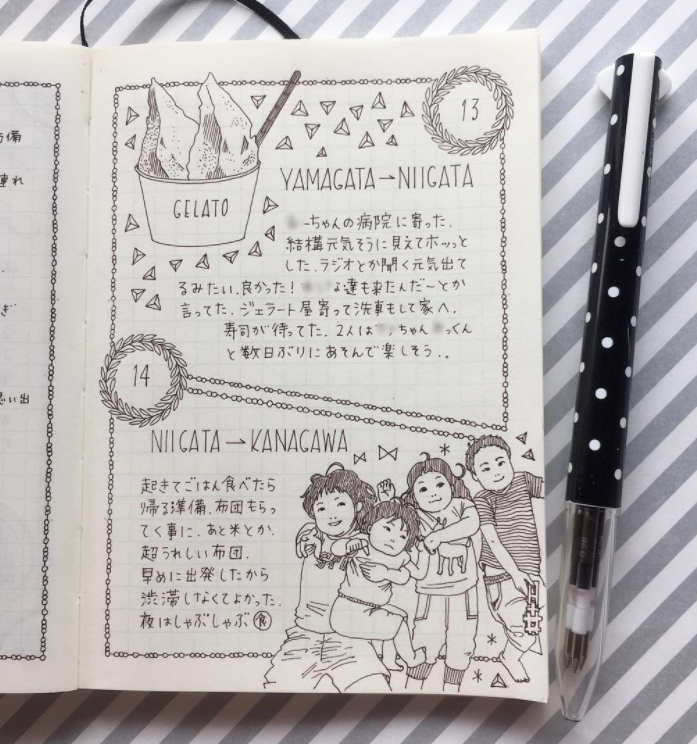 備
連れ
ぎ
思い出
13
YAMAGATA→NIIGATA
GELATO
ーちゃんの病院に寄った.
結構元気そうに見えてホッっと
した.ラジオとか聞く元気出て
るみたい.良かった! よ達も来たんだ〜とか
言ってた.ジェラート屋寄って洗車もして家へ.
寿司が待ってた.2人は ちゃん っくん
と数日ぶりにあそんで楽しそう..
14
NIIGATA→KANAGAWA
起きてごはん食べたら
帰る準備.布団もらっ
てく事に.あと米とか.
超うれしい布団.
早めに出発したから
渋滞しなくてよかった.
夜はしゃぶしゃぶ食